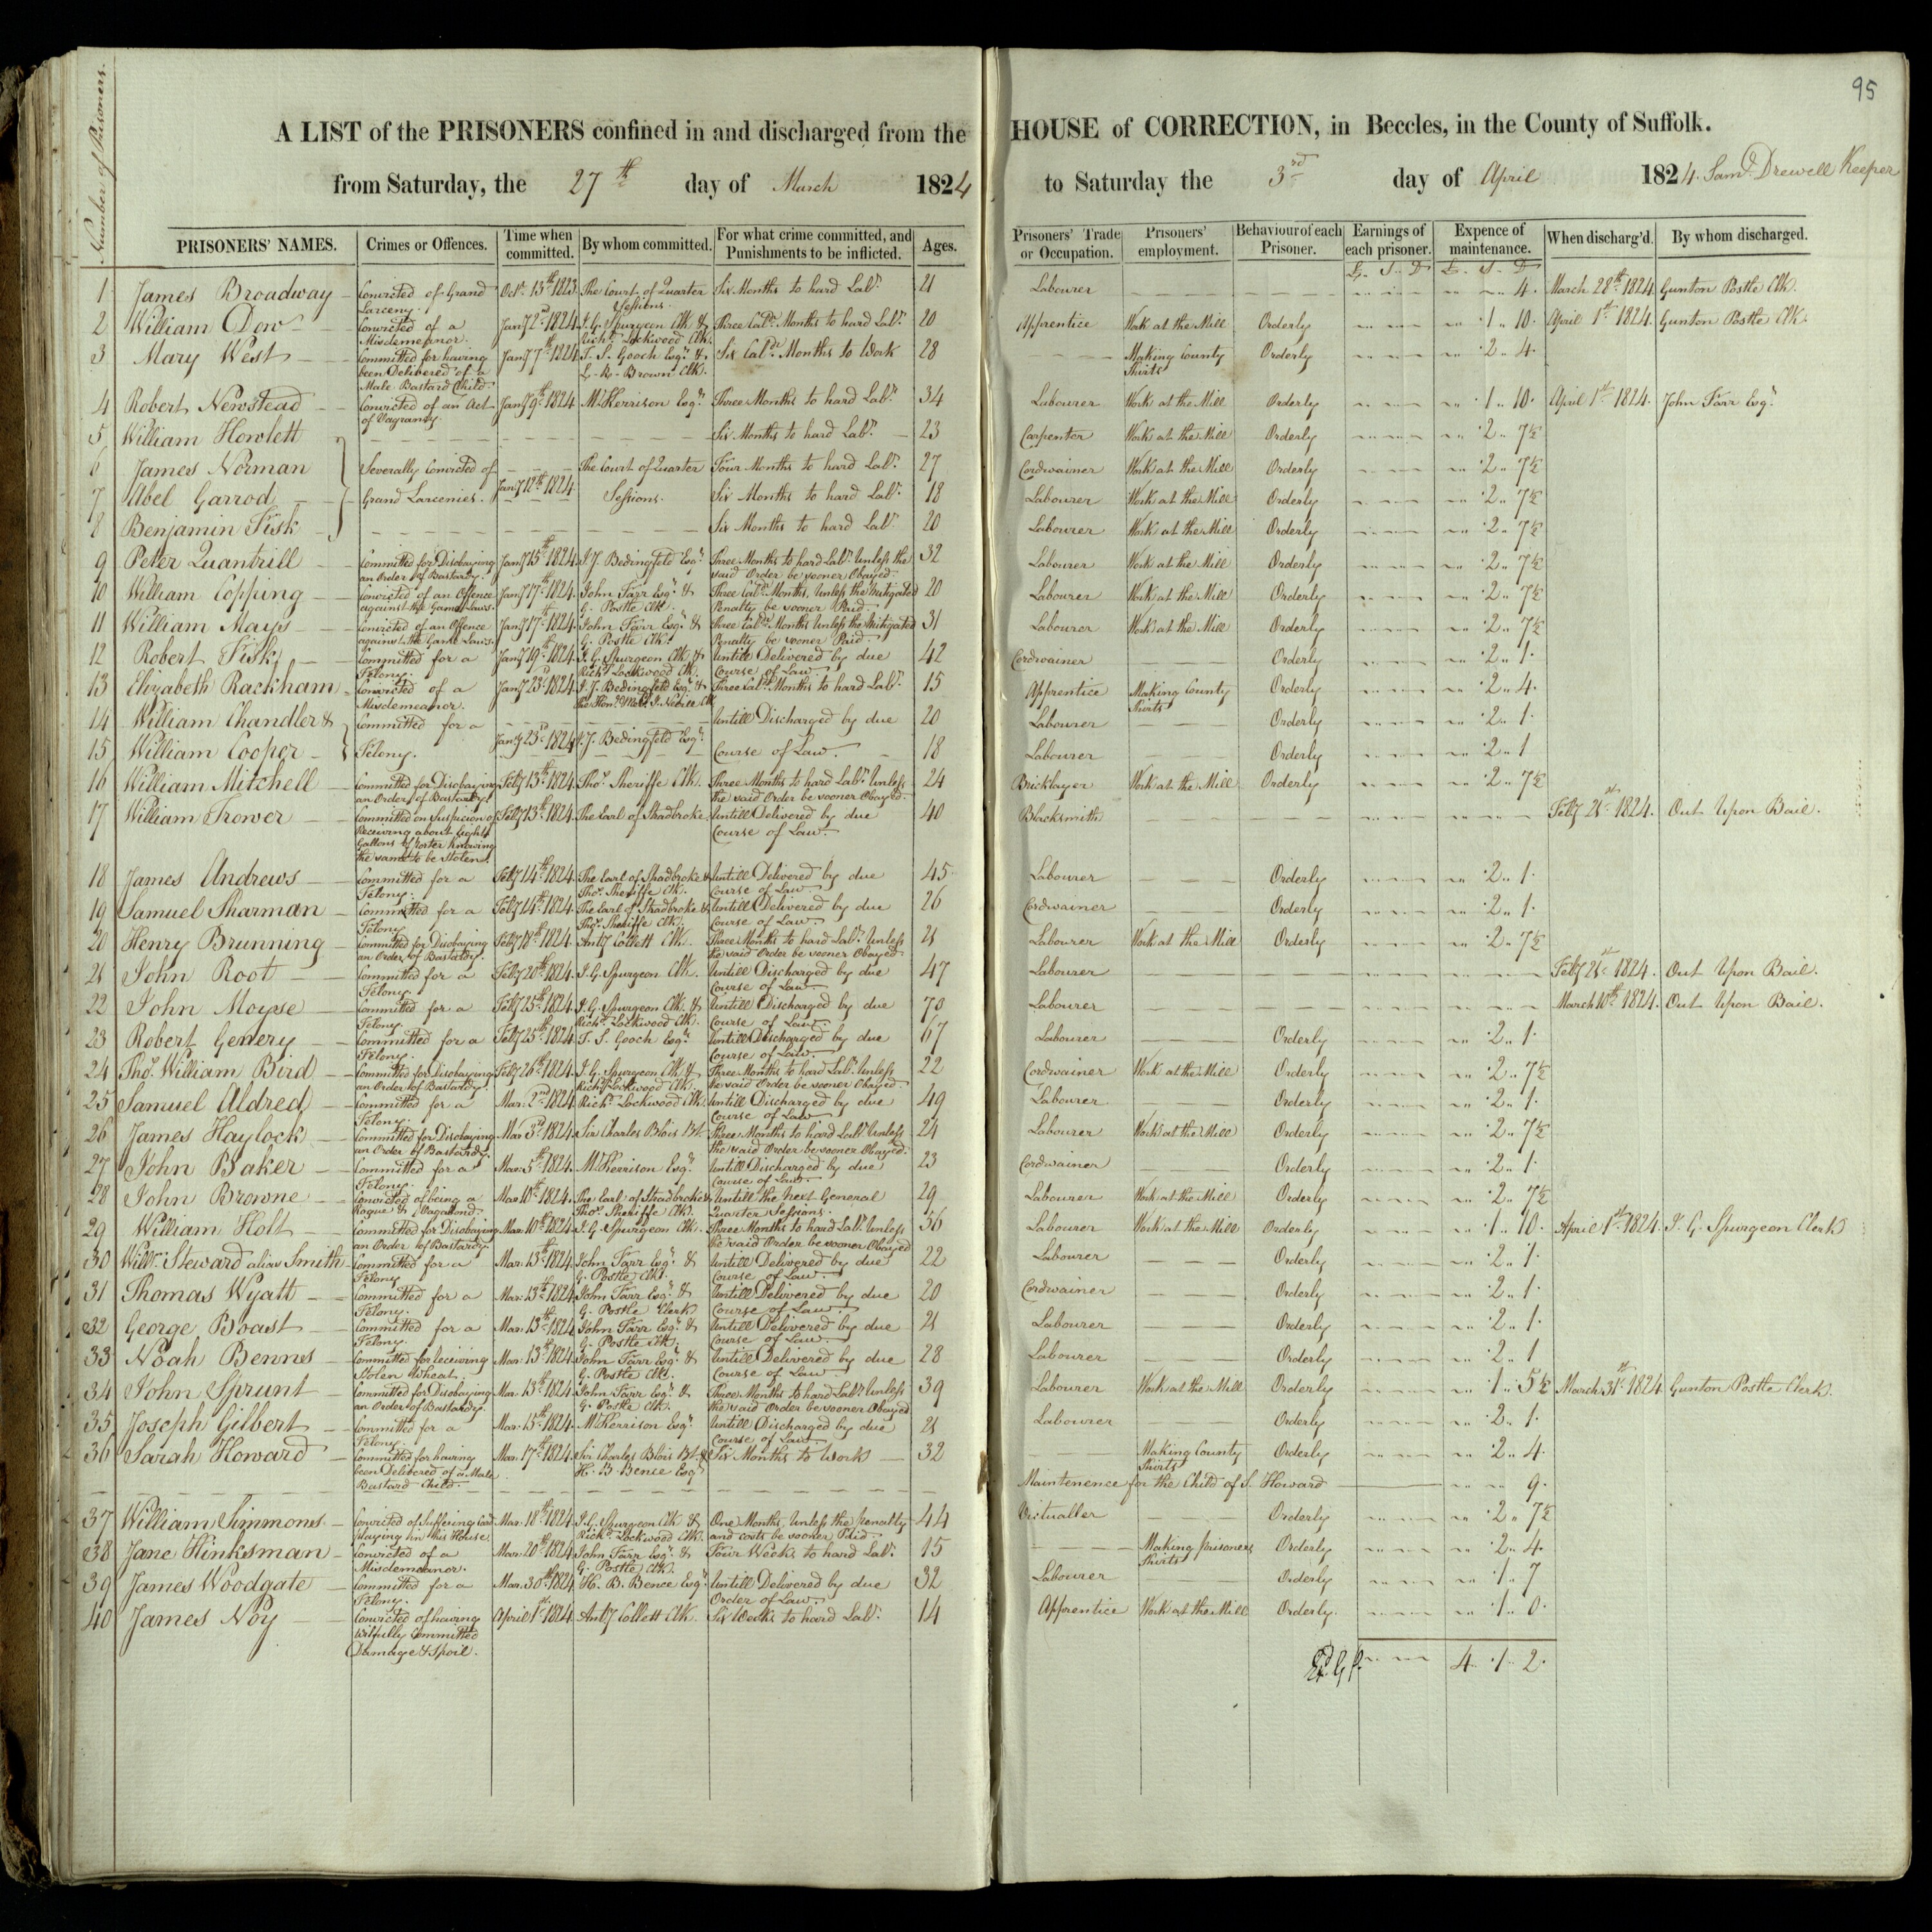 95
Number of Prisoners.
A LIST of the PRISONERS confined in and discharged from the HOUSE of CORRECTION, in Beccles, in the County of Suffolk.
from Saturday, the 27th day of March 1824 to Saturday the 3rd day of April 1824. Saml. Drewell Keeper
PRISONERS' NAMES. Crimes or Offences. Time when committed. By whom committed. For what crime committed, and Punishments to be inflicted. Ages. Prisoners' Trade or Occupation. Prisoners' employment. Behaviour of each Prisoner. Earnings of each prisoner. Expence of maintenance. When discharg'd. By whom discharged.
£. S. D £. S. D
1 James Broadway Convicted of Grand Larceny. Octr. 13th 1823 The Court of Quarter Sessions. Six Months to hard Labr. 21 Labourer 4. March 28th 1824 Gunton Postle Clk.
2 William Dow Convicted of a Misdemeanor. Jany 2nd 1824 J. G. Spurgeon Clk & Richd. Lockwood Clk. Three Calr. Months to hard Labr. 20 Apprentice Work at the Mill Orderly 1.. 10. April 1st 1824. Gunton Postle Clk.
3 Mary West Committed for having been Delivered of a Male Bastard Child Jany 7th 1824 T. S. Gooch Esqr. & L. R. Brown Clk. Six Calr. Months to Work 28 Making County Shirts Orderly 2.. 4.
4 Robert Newstead Convicted of an Act of Vagrancy. Jany 9th 1824 M. Kerrison Esqr. Three Months to hard Labr. 34 Labourer Work at the Mill Orderly 1.. 10. April 1st 1824. John Farr Esqr.
5 William Howlett Six Months to hard Labr. 23 Carpenter Work at the Mill Orderly 2.. 7½
6 James Norman Severally Convicted of The Court of Quarter Four Months to hard Labr. 27 Cordwainer Work at the Mill Orderly 2.. 7½
7 Abel Garrod Grand Larcenies. Jany 12th 1824 Sessions. Six Months to hard Labr. 18 Labourer Work at the Mill Orderly 2.. 7½
8 Benjamin Fisk Six Months to hard Labr. 20 Labourer Work at the Mill Orderly 2.. 7½
9 Peter Quantrill Committed for Disobaying an Order of Bastardy. Jany 15th 1824. J. J. Bedingfeld Esqr. Three Months to hard Labr. Unless the said Order be sooner Obayed 32 Labourer Work at the Mill Orderly 2.. 7½
10 William Copping Convicted of an Offence against the Game Laws. Jany 17th 1824. John Farr Esqr. & G. Postle Clk. Three Calr. Months, Unless the Mitigated Penalty be sooner Paid. 20 Labourer Work at the Mill Orderly 2.. 7½
11 William Mays Convicted of an Offence against the Game Laws. Jany 17th 1824. John Farr Esqr. & G. Postle Clk. Three Calr. Months Unless the Mitigated Penalty be sooner Paid. 31 Labourer Work at the Mill Orderly 2.. 7½
12 Robert Fisk Committed for a Felony. Jany 19th 1824. J. G. Spurgeon Clk & Richd. Lockwood Clk. Untill Delivered by due Course of Law. 42 Cordwainer Orderly 2.. 1.
13 Elizabeth Rackham Convicted of a Misdemeanor. Jany 23rd 1824 J. J. Bedingfeld Esqr. & Three Calr. Months to hard Labr. 15 Apprentice Making County Shirts Orderly 2.. 4.
14 William Chandler & Committed for a Untill Discharged by due 20 Labourer Orderly 2.. 1.
15 William Cooper Felony. Jany 23rd 1824 J. J. Bedingfeld Esqr. Course of Law. 18 Labourer Orderly 2.. 1
16 William Mitchell Committed for Disobaying an Order of Bastardy. Feby 13th 1824. Thos. Sheriffe Clk. Three Months to hard Labr. Unless the said Order be sooner Obayed. 24 Bricklayer Work at the Mill Orderly 2.. 7½
17 William Trower Committed on Suspicion of Receiving about Eight Gallons of Porter knowing the same to be Stolen. Feby 13th 1824. The Earl of Stradbroke Untill Delivered by due Course of Law. 40 Blacksmith Feby 21st 1824. Out Upon Bail.
18 James Andrews Committed for a Felony. Feby 14th 1824. The Earl of Stradbroke & Thos. Sheriffe Clk. Untill Delivered by due Course of Law 45 Labourer Orderly 2.. 1.
19 Samuel Sharman Committed for a Felony Feby 14th 1824. The Earl of Stradbroke & Thos. Sheriffe Clk. Untill Delivered by due Course of Law 26 Cordwainer Orderly 2.. 1.
20 Henry Brunning Committed for Disobaying an Order of Bastardy. Feby 18th 1824. Anty Collett Clk. Three Months to hard Labr. Unless the said Order be sooner Obayed 21 Labourer Work at the Mill Orderly 2.. 7½
21 John Root Committed for a Felony. Feby 20th 1824. J. G. Spurgeon Clk. Untill Discharged by due Course of Law. 47 Labourer Feby 21st 1824. Out Upon Bail.
22 John Moyse Committed for a Felony. Feby 25th 1824. J. G. Spurgeon Clk. & Richd. Lockwood Clk. Untill Discharged by due Course of Law. 70 Labourer March 10th 1824. Out Upon Bail.
23 Robert Genery Committed for a Felony. Feby 25th 1824. T. S. Gooch Esqr. Untill Discharged by due Course of Law. 67 Labourer Orderly 2.. 1.
24 Thos. William Bird Committed for Disobaying an Order of Bastardy. Feby 26th 1824. J. G. Spurgeon Clk & Richd. Lockwood Clk. Three Months to hard Labr. Unless the said Order be sooner Obayed. 22 Cordwainer Work at the Mill Orderly 2.. 7½
25 Samuel Aldred Committed for a Felony. Mar. 2nd 1824 Richd. Lockwood Clk. Untill Discharged by due Course of Law 49 Labourer Orderly 2.. 1.
26 James Haylock Committed for Disobaying an Order of Bastardy. Mar. 3rd 1824. Sir Charles Blois Bt. Three Months to hard Labr. Unless the said Order be sooner Obayed. 24 Labourer Work at the Mill Orderly 2.. 7½
27 John Baker Committed for a Felony. Mar. 5th 1824. M. Kerrison Esqr. Untill Discharged by due Course of Law. 23 Cordwainer Orderly 2.. 1.
28 John Browne Convicted of being a Rogue & Vagabond. Mar. 10th 1824. The Earl of Stradbroke & Thos. Sheriffe Clk. Untill the Next General Quarter Sessions. 29 Labourer Work at the Mill Orderly 2.. 7½
29 William Holt Committed for Disobaying an Order of Bastardy. Mar. 10th 1824. J. G. Spurgeon Clk. Three Months to hard Labr. Unless the said Order be sooner Obayed 36 Labourer Work at the Mill Orderly 1.. 10. April 1st 1824. J. G. Spurgeon Clerk
30 Willm. Steward alias Smith Committed for a Felony Mar. 13th 1824. John Farr Esqr. & G. Postle Clk. Untill Delivered by due Course of Law. 22 Labourer Orderly 2.. 1.
31 Thomas Wyatt Committed for a Felony. Mar. 13th 1824 John Farr Esqr. & G. Postle Clerk Untill Delivered by due Course of Law. 20 Cordwainer Orderly 2.. 1.
32 George Boast Committed for a Felony. Mar. 13th 1824 John Farr Esqr. & G. Postle Clk Untill Delivered by due Course of Law. 21 Labourer Orderly 2.. 1.
33 Noah Bennes Committed for receiving Stolen Wheat. Mar. 13th 1824 John Farr Esqr. & G. Postle Clk. Untill Delivered by due Course of Law. 28 Labourer Orderly 2.. 1
34 John Sprunt Committed for Disobaying an Order of Bastardy. Mar. 13th 1824 John Farr Esqr. & G. Postle Clk. Three Months to hard Labr. Unless the said Order be sooner Obayed 39 Labourer Work at the Mill Orderly 1.. 5½ March 31st 1824 Gunton Postle Clerk.
35 Joseph Gilbert Committed for a Felony. Mar. 15th 1824. M. Kerrison Esqr. Untill Discharged by due Course of Law. 21 Labourer Orderly 2.. 1.
36 Sarah Howard Committed for having been Delivered of a Male Bastard Child. Mar. 17th 1824 Sir Charles Blois Bt. & H. B. Bence Esqr. Six Months to Work 32 Making County Shirts Orderly 2.. 4.
Maintenence for the Child of S. Howard 9.
37 William Simmons Convicted of Suffering Card playing in his House. Mar. 18th 1824 J. G. Spurgeon Clk & Richd. Lockwood Clk. One Month, Unless the penalty and costs be sooner Paid. 44 Victualler Orderly 2.. 7½
38 Jane Hinksman Convicted of a Misdemeanor. Mar. 20th 1824 John Farr Esqr. & G. Postle Clk. Four Weeks to hard Labr. 15 Making prisoners Shirts Orderly 2.. 4.
39 James Woodgate Committed for a Felony. Mar. 30th 1824 H. B. Bence Esqr. Untill Delivered by due Order of Law. 32 Labourer Orderly 1.. 7
40 James Noy Convicted of having Wilfully Committed Damage & Spoil. April 1st 1824 Anty Collett Clk. Six Weeks to hard Labr. 14 Apprentice Work at the Mill Orderly. 1.. 0.
4.. 1.. 2.